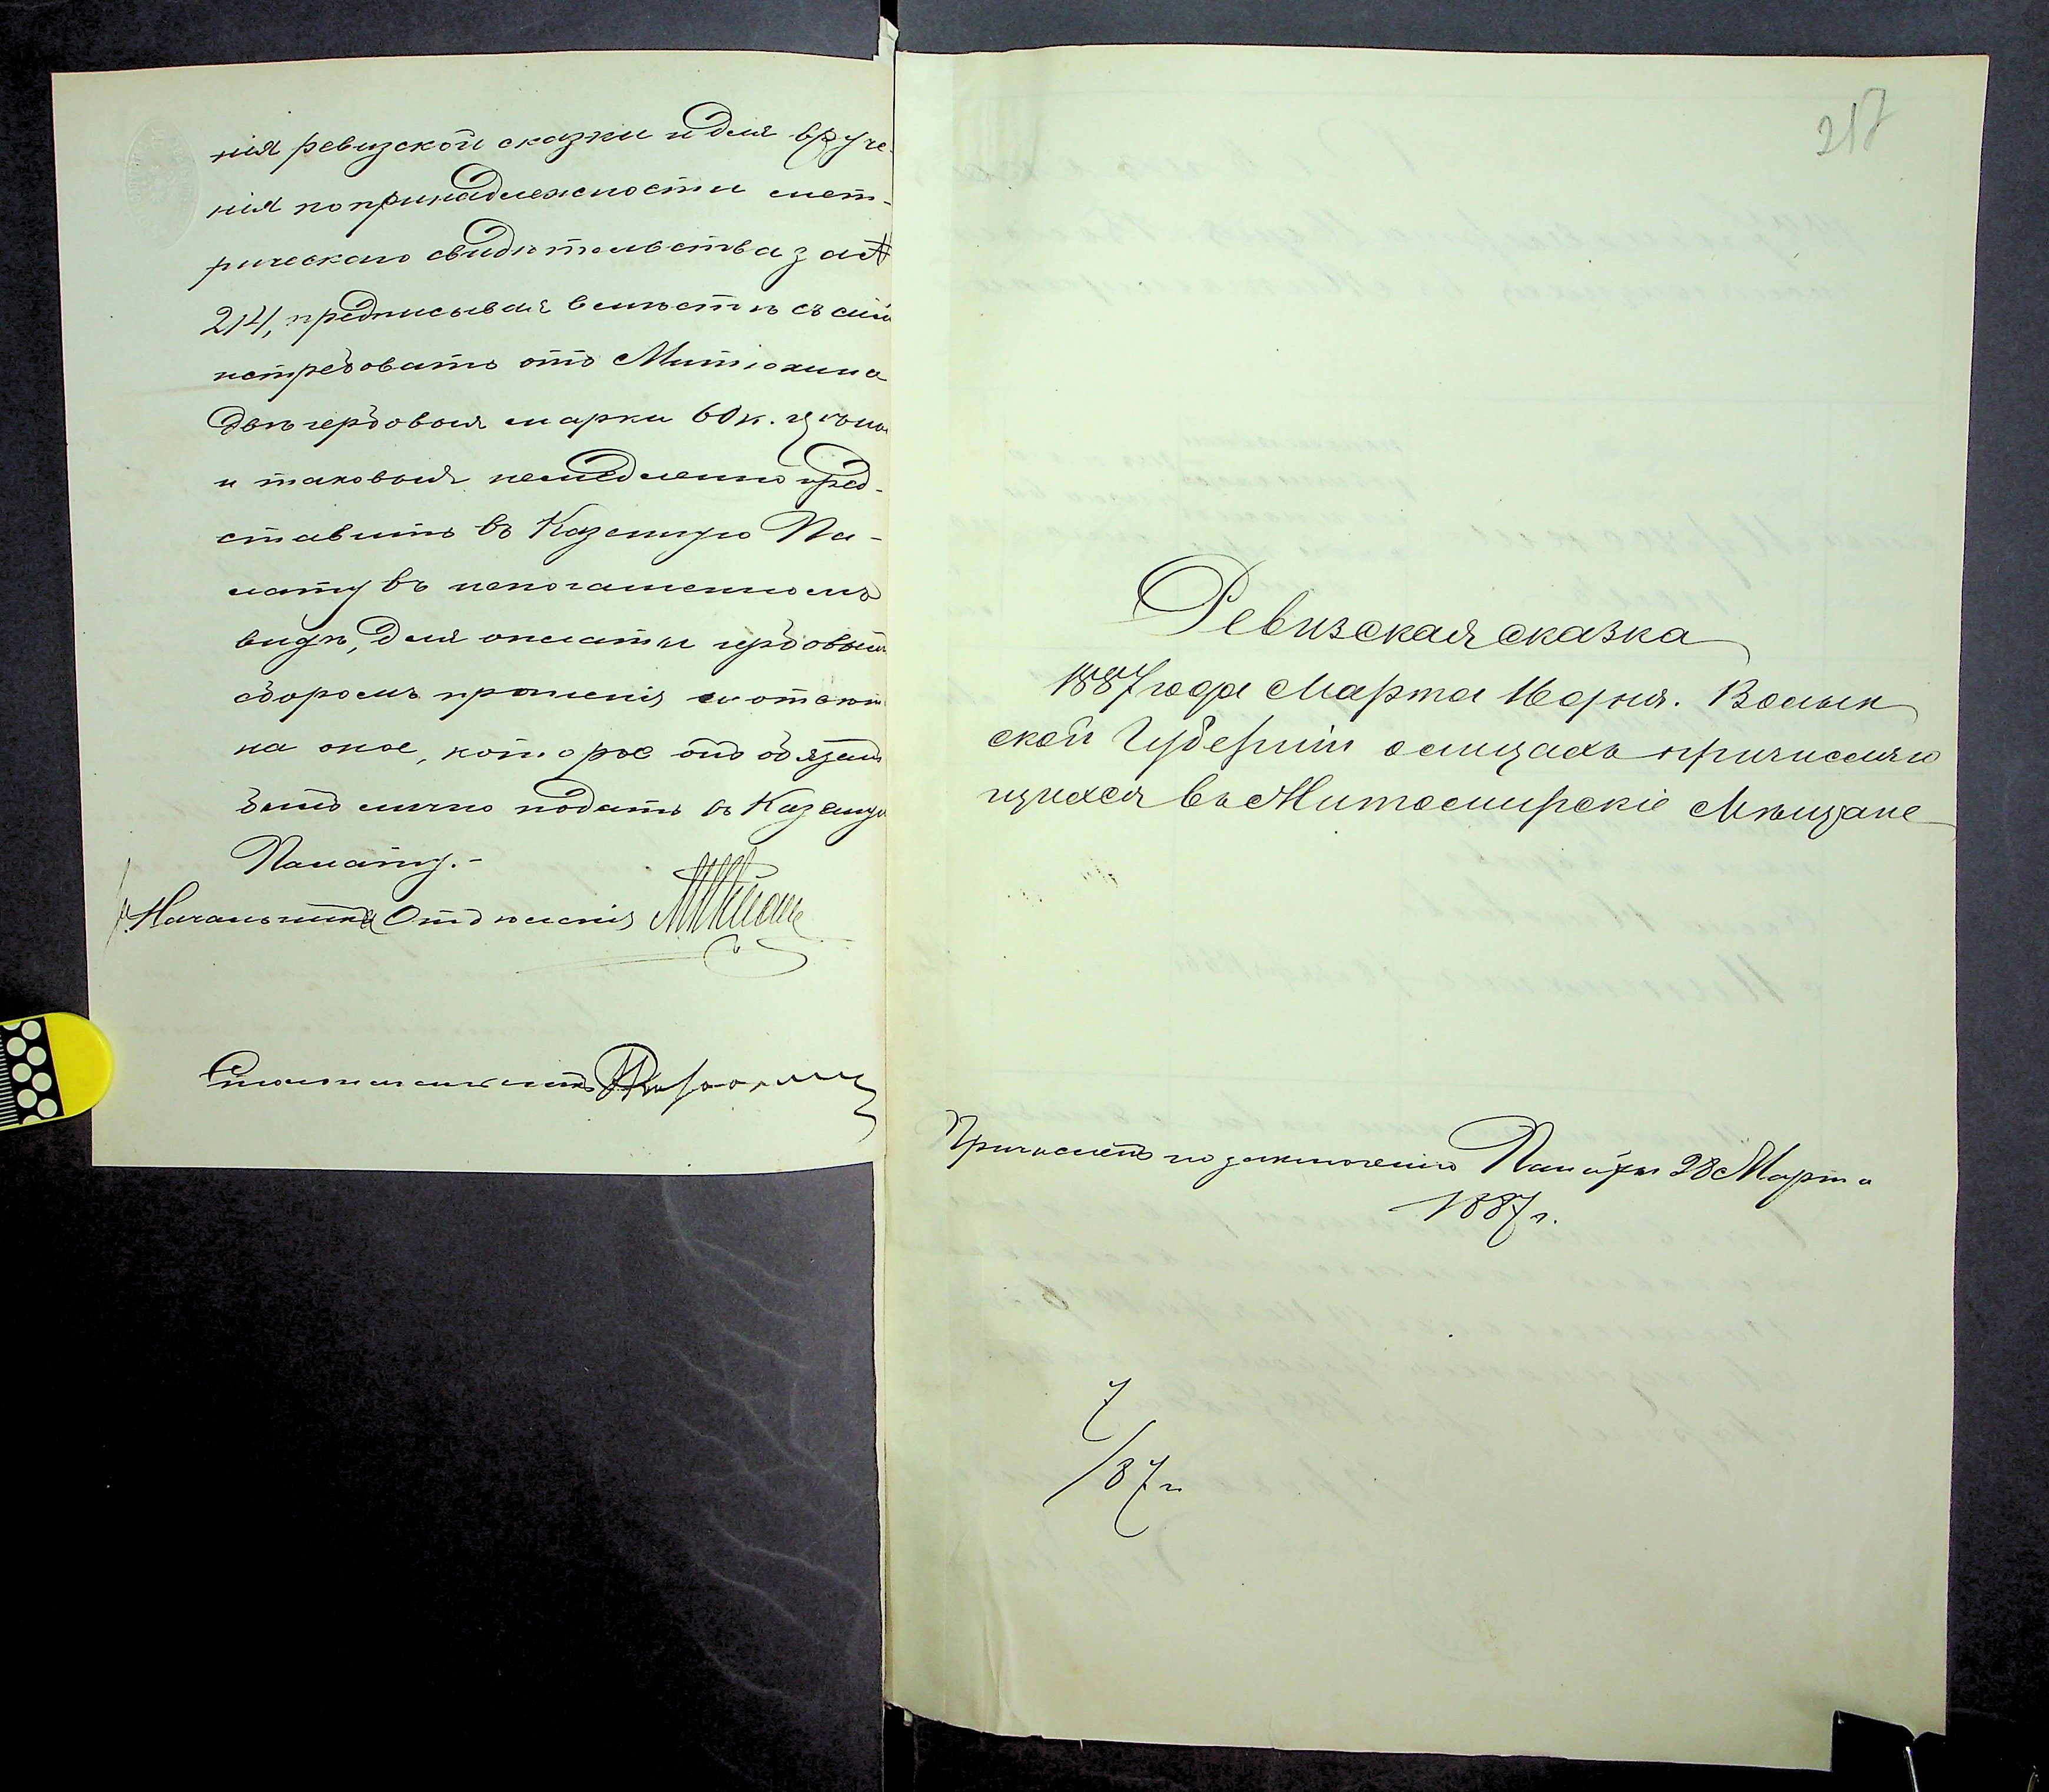 нія ревизской сказки и для вруче-
нія по принадлежности мет-
рическаго свидѣтельства за №
214, предписывая вмѣстѣ съ симъ
истребовать отъ Митюхина
двѣ гербовыя марки 60 к. цѣны
и таковыя немедленно пред-
ставить въ Казенную Па-
лату въ непогашенномъ
видѣ, для оплаты гербовымъ
сборомъ прошенія и отвѣта
на оное, которое онъ обязанъ
былъ лично подать въ Казенную
Палату.-
Начальника Отдѣленія
Столоначальникъ
217
Ревизская сказка
1887 года Марта 16 дня. Волын
ской Губерніи о лицахъ причисляю
щихся въ Житомирскіе Мѣщане
Причисленъ по заключенію Палаты 28 Марта
1887 г.
7
/87 г.